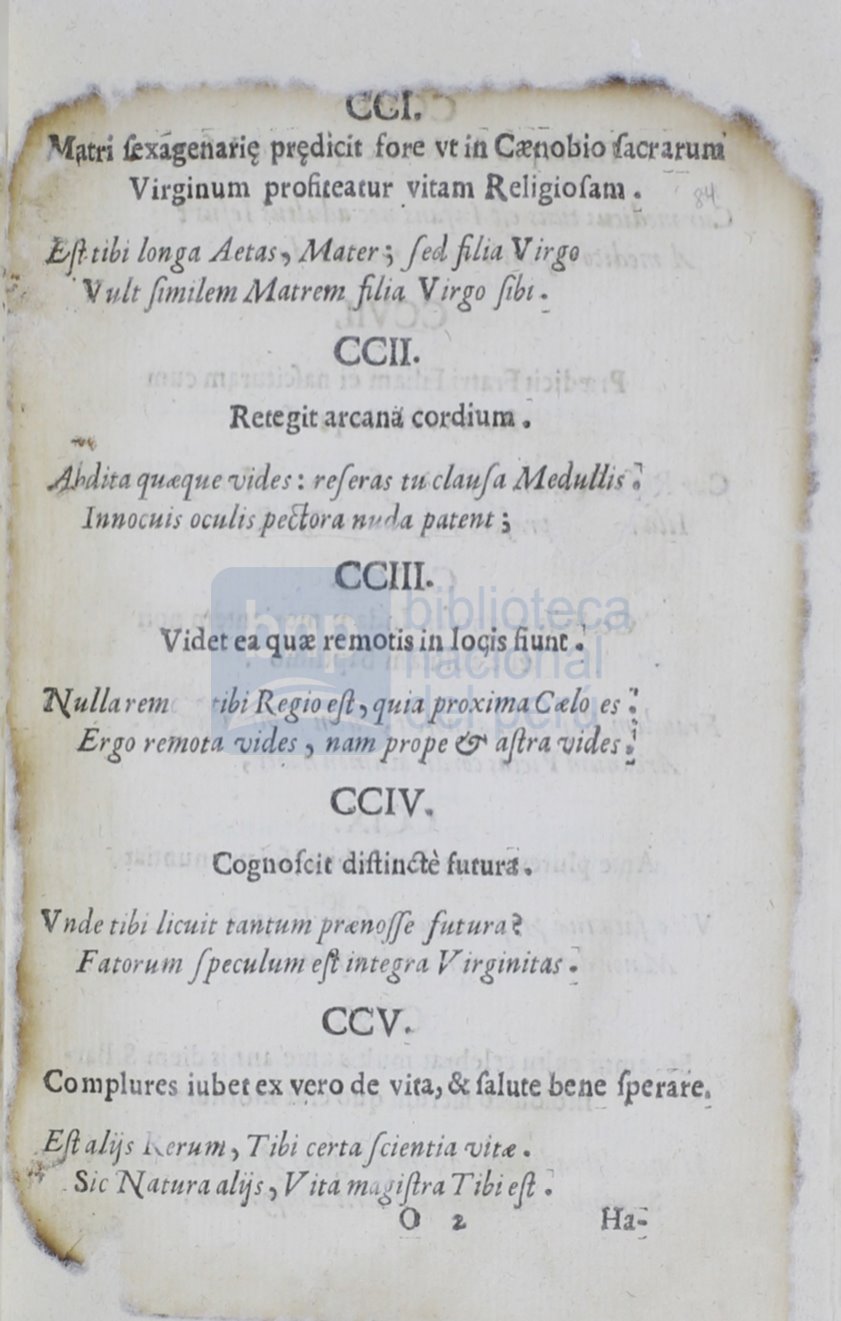 CCI.
Matri ſexagenarię prędicit fore vt in Cænobio ſacrarum
Virginum profiteatur vitam Religioſam.
84
Eſt tibi longa Aetas, Mater; ſed filia Virgo
Vult ſimilem Matrem filia Virgo ſibi.
CCII.
Retegit arcana cordium.
Abdita quæque vides: reſeras tu clauſa Medullis.
Innocuis oculis pectora nuda patent;
CCIII.
Videt ea quæ remotis in locis fiunt.
Nulla rem tibi Regio eſt, quia proxima Cælo es:
Ergo remota vides, nam prope & aſtra vides.
CCIV.
Cognoſcit diſtinctè futura.
Vnde tibi licuit tantum prænoſſe futura?
Fatorum ſpeculum eſt integra Virginitas.
CCV.
Complures iubet ex vero de vita, & ſalute bene ſperare.
Eſt alijs Rerum, Tibi certa ſcientia vitæ.
Sic Natura alijs, Vita magiſtra Tibi eſt.
O 2 Ha-
bnp biblioteca
nacional
del perú